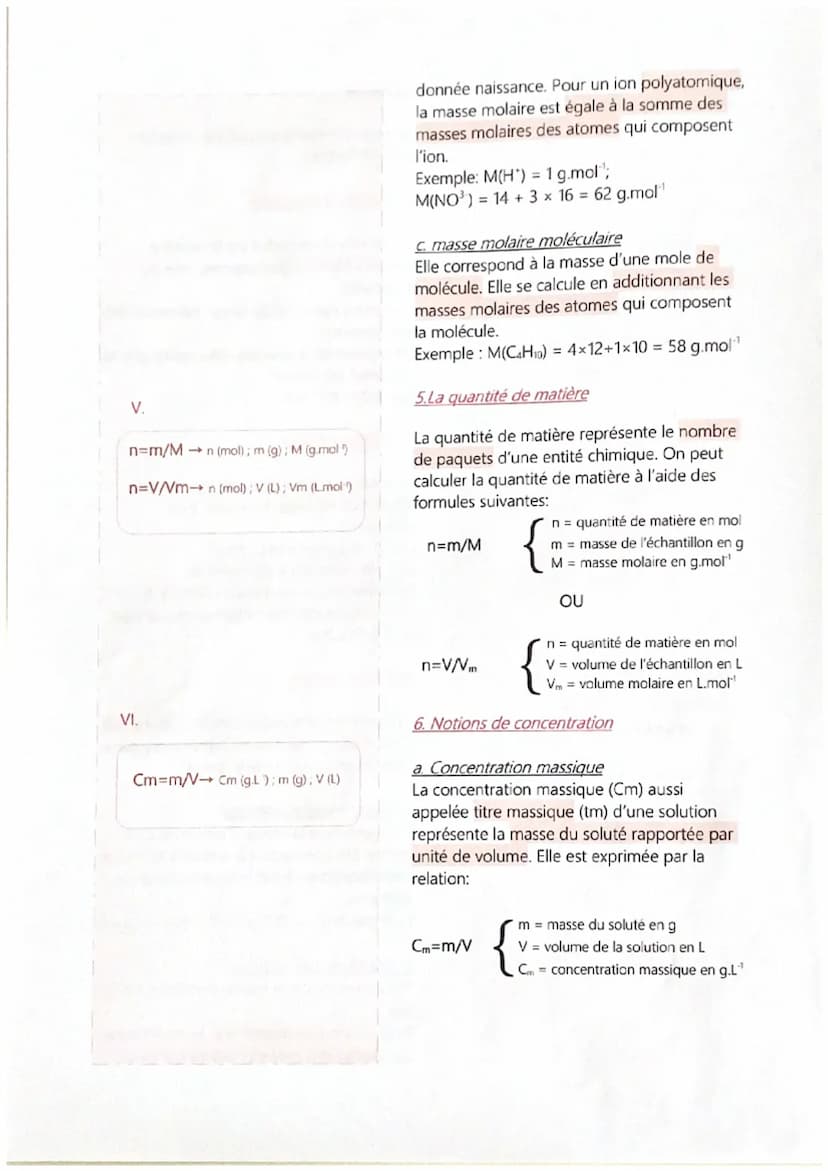 donnée naissance. Pour un ion polyatomique,
la masse molaire est égale à la somme des
masses molaires des atomes qui composent
l'ion.
Exemple: M(H⁺) = 1 g.mol⁻¹;
M(NO³⁻) = 14 + 3 × 16 = 62 g.mol⁻¹
c. masse molaire moléculaire
Elle correspond à la masse d'une mole de
molécule. Elle se calcule en additionnant les
masses molaires des atomes qui composent
la molécule.
Exemple : M(C₄H₁₀) = 4×12+1×10 = 58 g.mol⁻¹
5.La quantité de matière
La quantité de matière représente le nombre
de paquets d'une entité chimique. On peut
calculer la quantité de matière à l'aide des
formules suivantes:
n=m/M
n = quantité de matière en mol
m = masse de l'échantillon en g
M = masse molaire en g.mol⁻¹
OU
n=V/Vₘ
n = quantité de matière en mol
V = volume de l'échantillon en L
Vₘ = volume molaire en L.mol⁻¹
6. Notions de concentration
a. Concentration massique
La concentration massique (Cm) aussi
appelée titre massique (tm) d'une solution
représente la masse du soluté rapportée par
unité de volume. Elle est exprimée par la
relation:
Cₘ=m/V
m = masse du soluté en g
V = volume de la solution en L
Cₘ = concentration massique en g.L⁻¹
V.
n=m/M → n (mol) ; m (g) ; M (g.mol⁻¹)
n=V/Vm→ n (mol) ; V (L) ; Vm (L.mol⁻¹)
VI.
Cm=m/V→ Cm (g.L⁻¹) ; m (g) ; V (L)